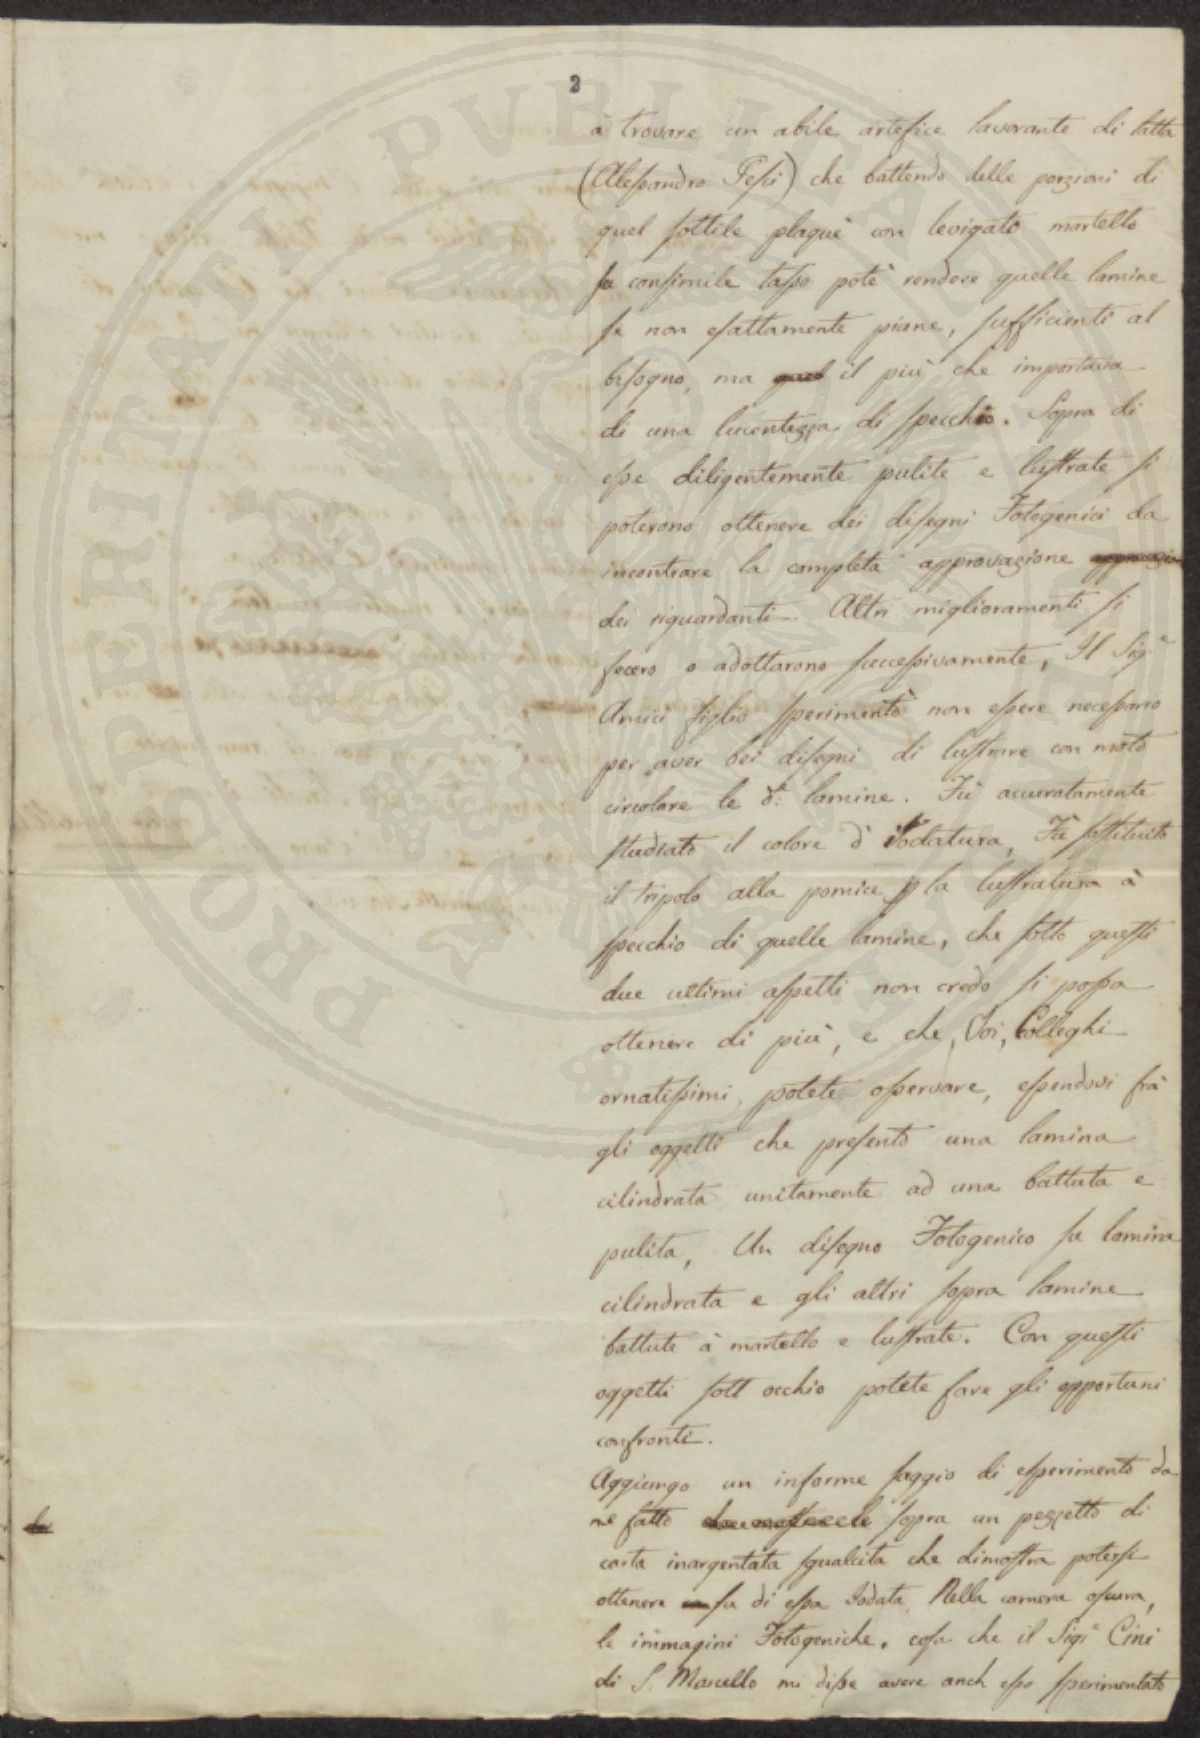 2
à trovare un abile artefice lavorante di latta
(Alessandro Pesci) che battendo delle porzioni di
quel sottile plaquè con levigato martello
su consimile tasso potè rendere quelle lamine
se non esattamente piane, sufficienti al
bisogno, ma il più che importava
di una lucentezza di specchio. Sopra di
esse diligentemente pulite e lustrate si
poterono ottenere dei disegni Fotogenici da
incontrare la completa approvazione
dei riguardanti. Altri miglioramenti si
fecero o adottarono successivamente, Il Sigr
Amici figlio sperimentò non essere necessario
per aver bei disegni di lustrare con moto
circolare le de: lamine. Fù accuratamente
studiato il colore d' Iodatura, Fù sostituito
il tripolo alla pomice p la lustratura à
specchio di quelle lamine, che sotto questi
due ultimi aspetti non credo si possa
ottenere di più, e che, Voi, Colleghi
ornatissimi, potete osservare, essendovi frà
gli oggetti che presento una lamina
cilindrata unitamente ad una battuta e
pulita, Un disegno Fotogenico su lamina
cilindrata e gli altri sopra lamine
battute à martello e lustrate. Con questi
oggetti sott occhio potete fare gli opportuni
confronti.
Aggiungo un informe saggio di esperimento da
me fatto sopra un pezzetto di
carta inargentata sgualcita che dimostra potersi
ottenere su di essa Iodata, Nella camera oscura,
le immagini Fotogeniche, cosa che il Sigr Cini
di S. Marcello mi disse avere anch esso sperimentato
PROPERITATI PVBLICAE